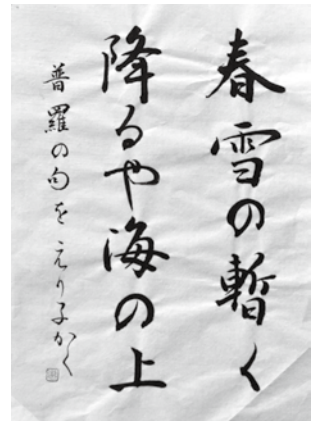 春雪の暫く
降るや海の上
普羅の句を えり子かく